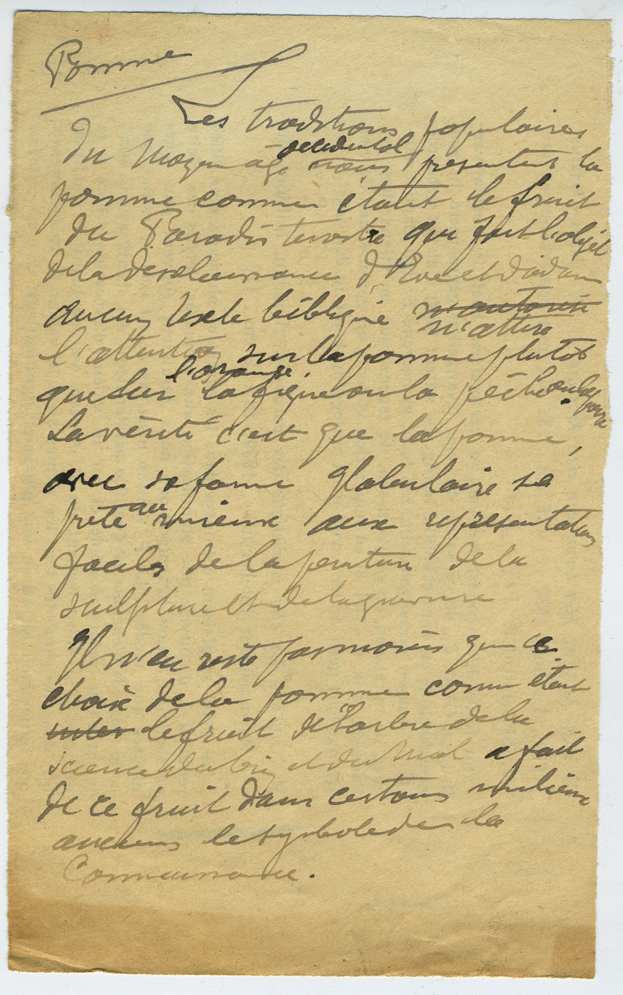 Pomme
Les traditions populaires
du Moyen age occidental nous présentent la
pomme comme étant le fruit
du Paradis terrestre qui fut l'objet
de la désobéissance d'Eve et d'Adam
aucun texte biblique n'autorise n'attire
l'attention sur la pomme plutôt
que sur l'orange la figue ou la pêche ou la poire
La vérité c'est que la pomme,
avec sa forme globulaire se
prête au mieux aux représentations
faciles de la peinture de la
sculpture et de la gravure
Il n'en reste pas moins que ce
choix de la pomme comme étant
le fruit de l'arbre de la
science du bien et du Mal a fait
de ce fruit dans certains milieux
anciens le symbole de la
Connaissance.